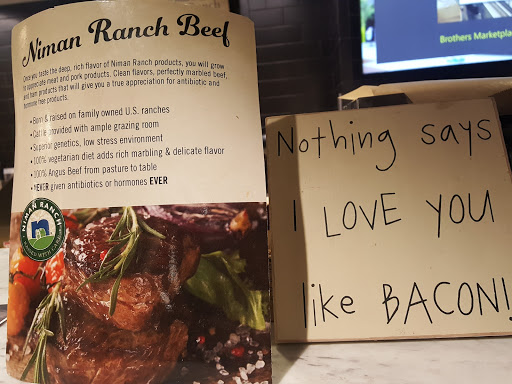 Niman Ranch Beef
Once you taste the deep, rich flavor of Niman Ranch products, you will grow
to appreciate meat and pork products. Clean flavors, perfectly marbled beef,
and ham products that will give you a true appreciation for antibiotic and
hormone free products.
• Born & raised on family owned U.S. ranches
• Cattle provided with ample grazing room
• Superior genetics, low stress environment
• 100% vegetarian diet adds rich marbling & delicate flavor
• 100% Angus Beef from pasture to table
• NEVER given antibiotics or hormones EVER
NIMAN RANCH
Brothers Marketpla
Nothing says
I LOVE YOU
like BACON!